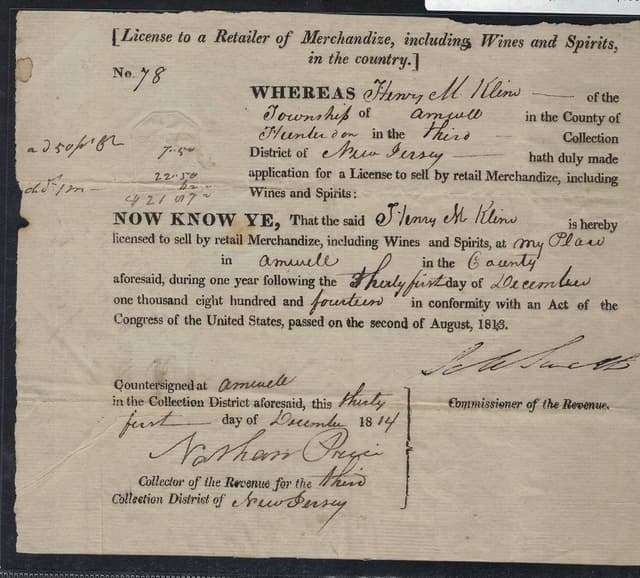 [License to a Retailer of Merchandize, including Wines and Spirits,
in the country.]
No. 78
WHEREAS Henry M Kline of the
Township of amwell in the County of
Hunterdon in the third Collection
District of New Jersey hath duly made
application for a License to sell by retail Merchandize, including
Wines and Spirits:
7.50
22.50
NOW KNOW YE, That the said Henry M Kline is hereby
licensed to sell by retail Merchandize, including Wines and Spirits, at my Place
in amwell in the County
aforesaid, during one year following the thirty first day of December
one thousand eight hundred and fourteen in conformity with an Act of the
Congress of the United States, passed on the second of August, 1813.
Commissioner of the Revenue.
Countersigned at amwell
in the Collection District aforesaid, this thirty
first day of December 1814
Nathan Price
Collector of the Revenue for the third
Collection District of New Jersey